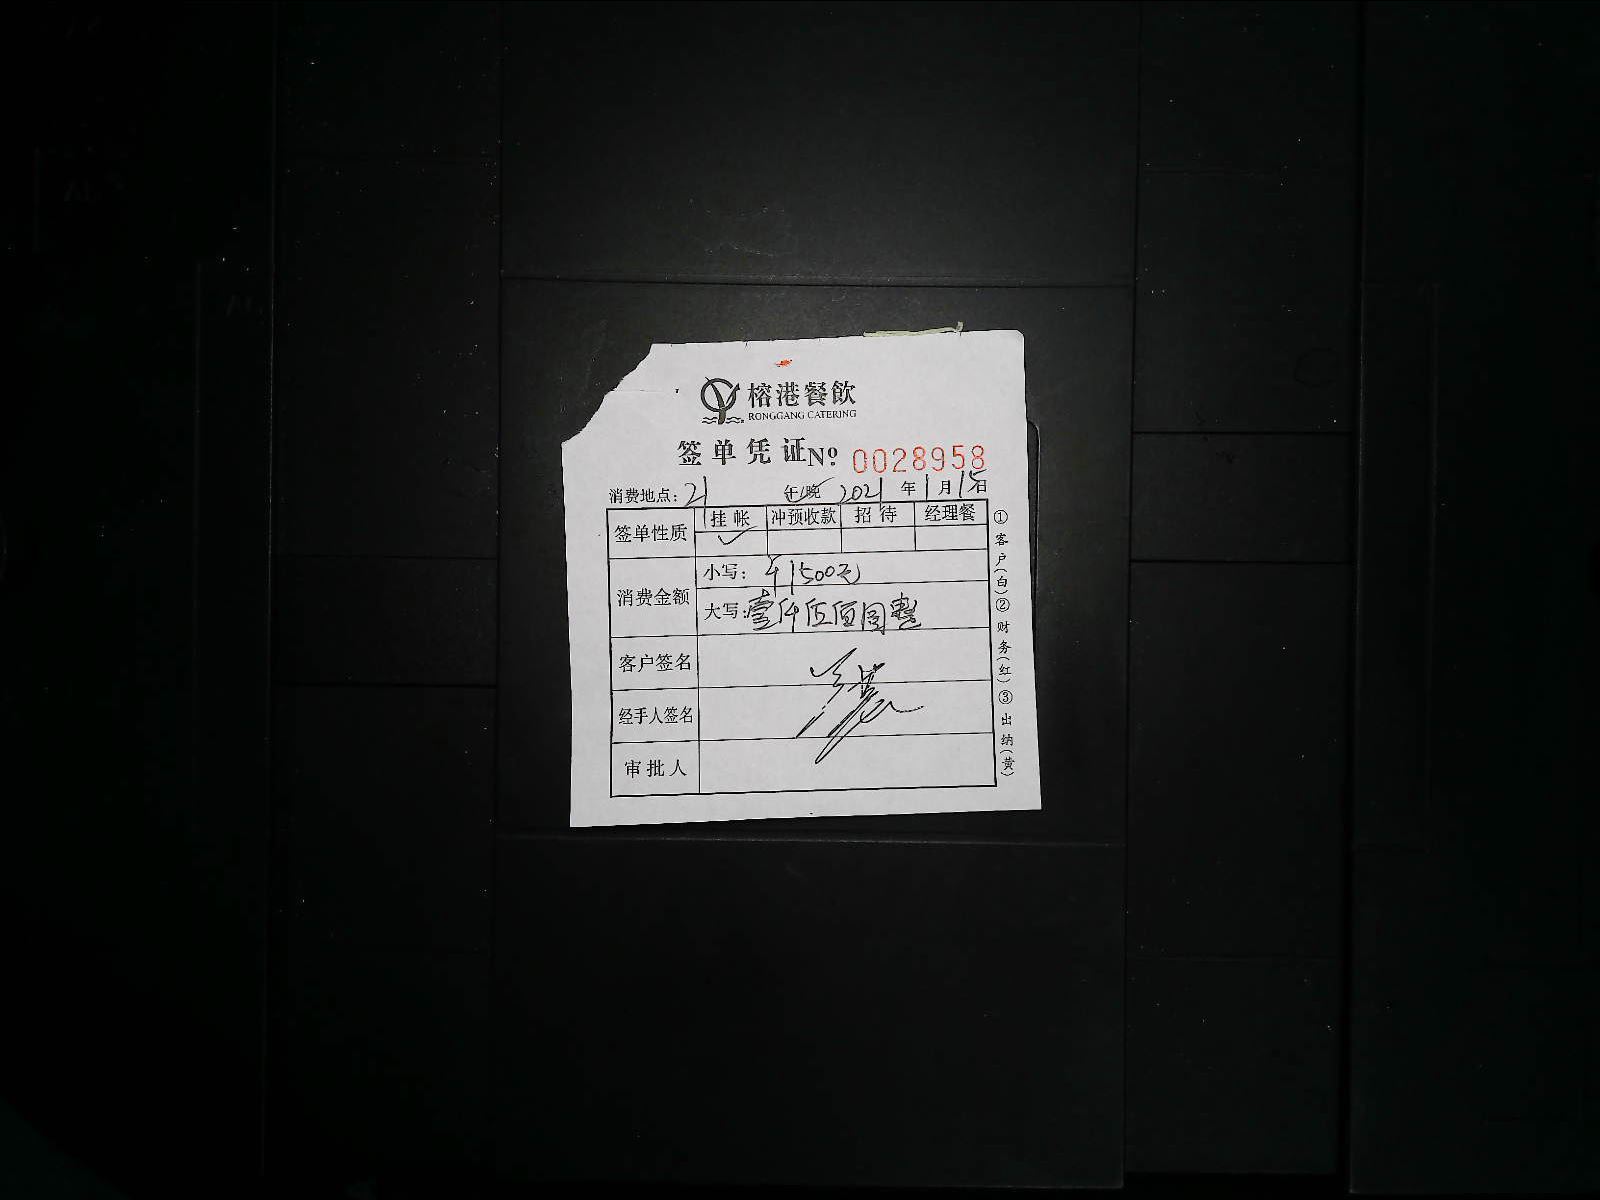 榕港餐飲
RONGGANG CATERING
签单凭证 № 0028958
消费地点：21 午/晚 2021年1月15日
签单性质 挂帐 冲预收款 招待 经理餐
✓
消费金额 小写：¥1500元
大写：壹仟伍佰圆整
客户签名
经手人签名
审批人
①客户（白）②财务（红）③出纳（黄）